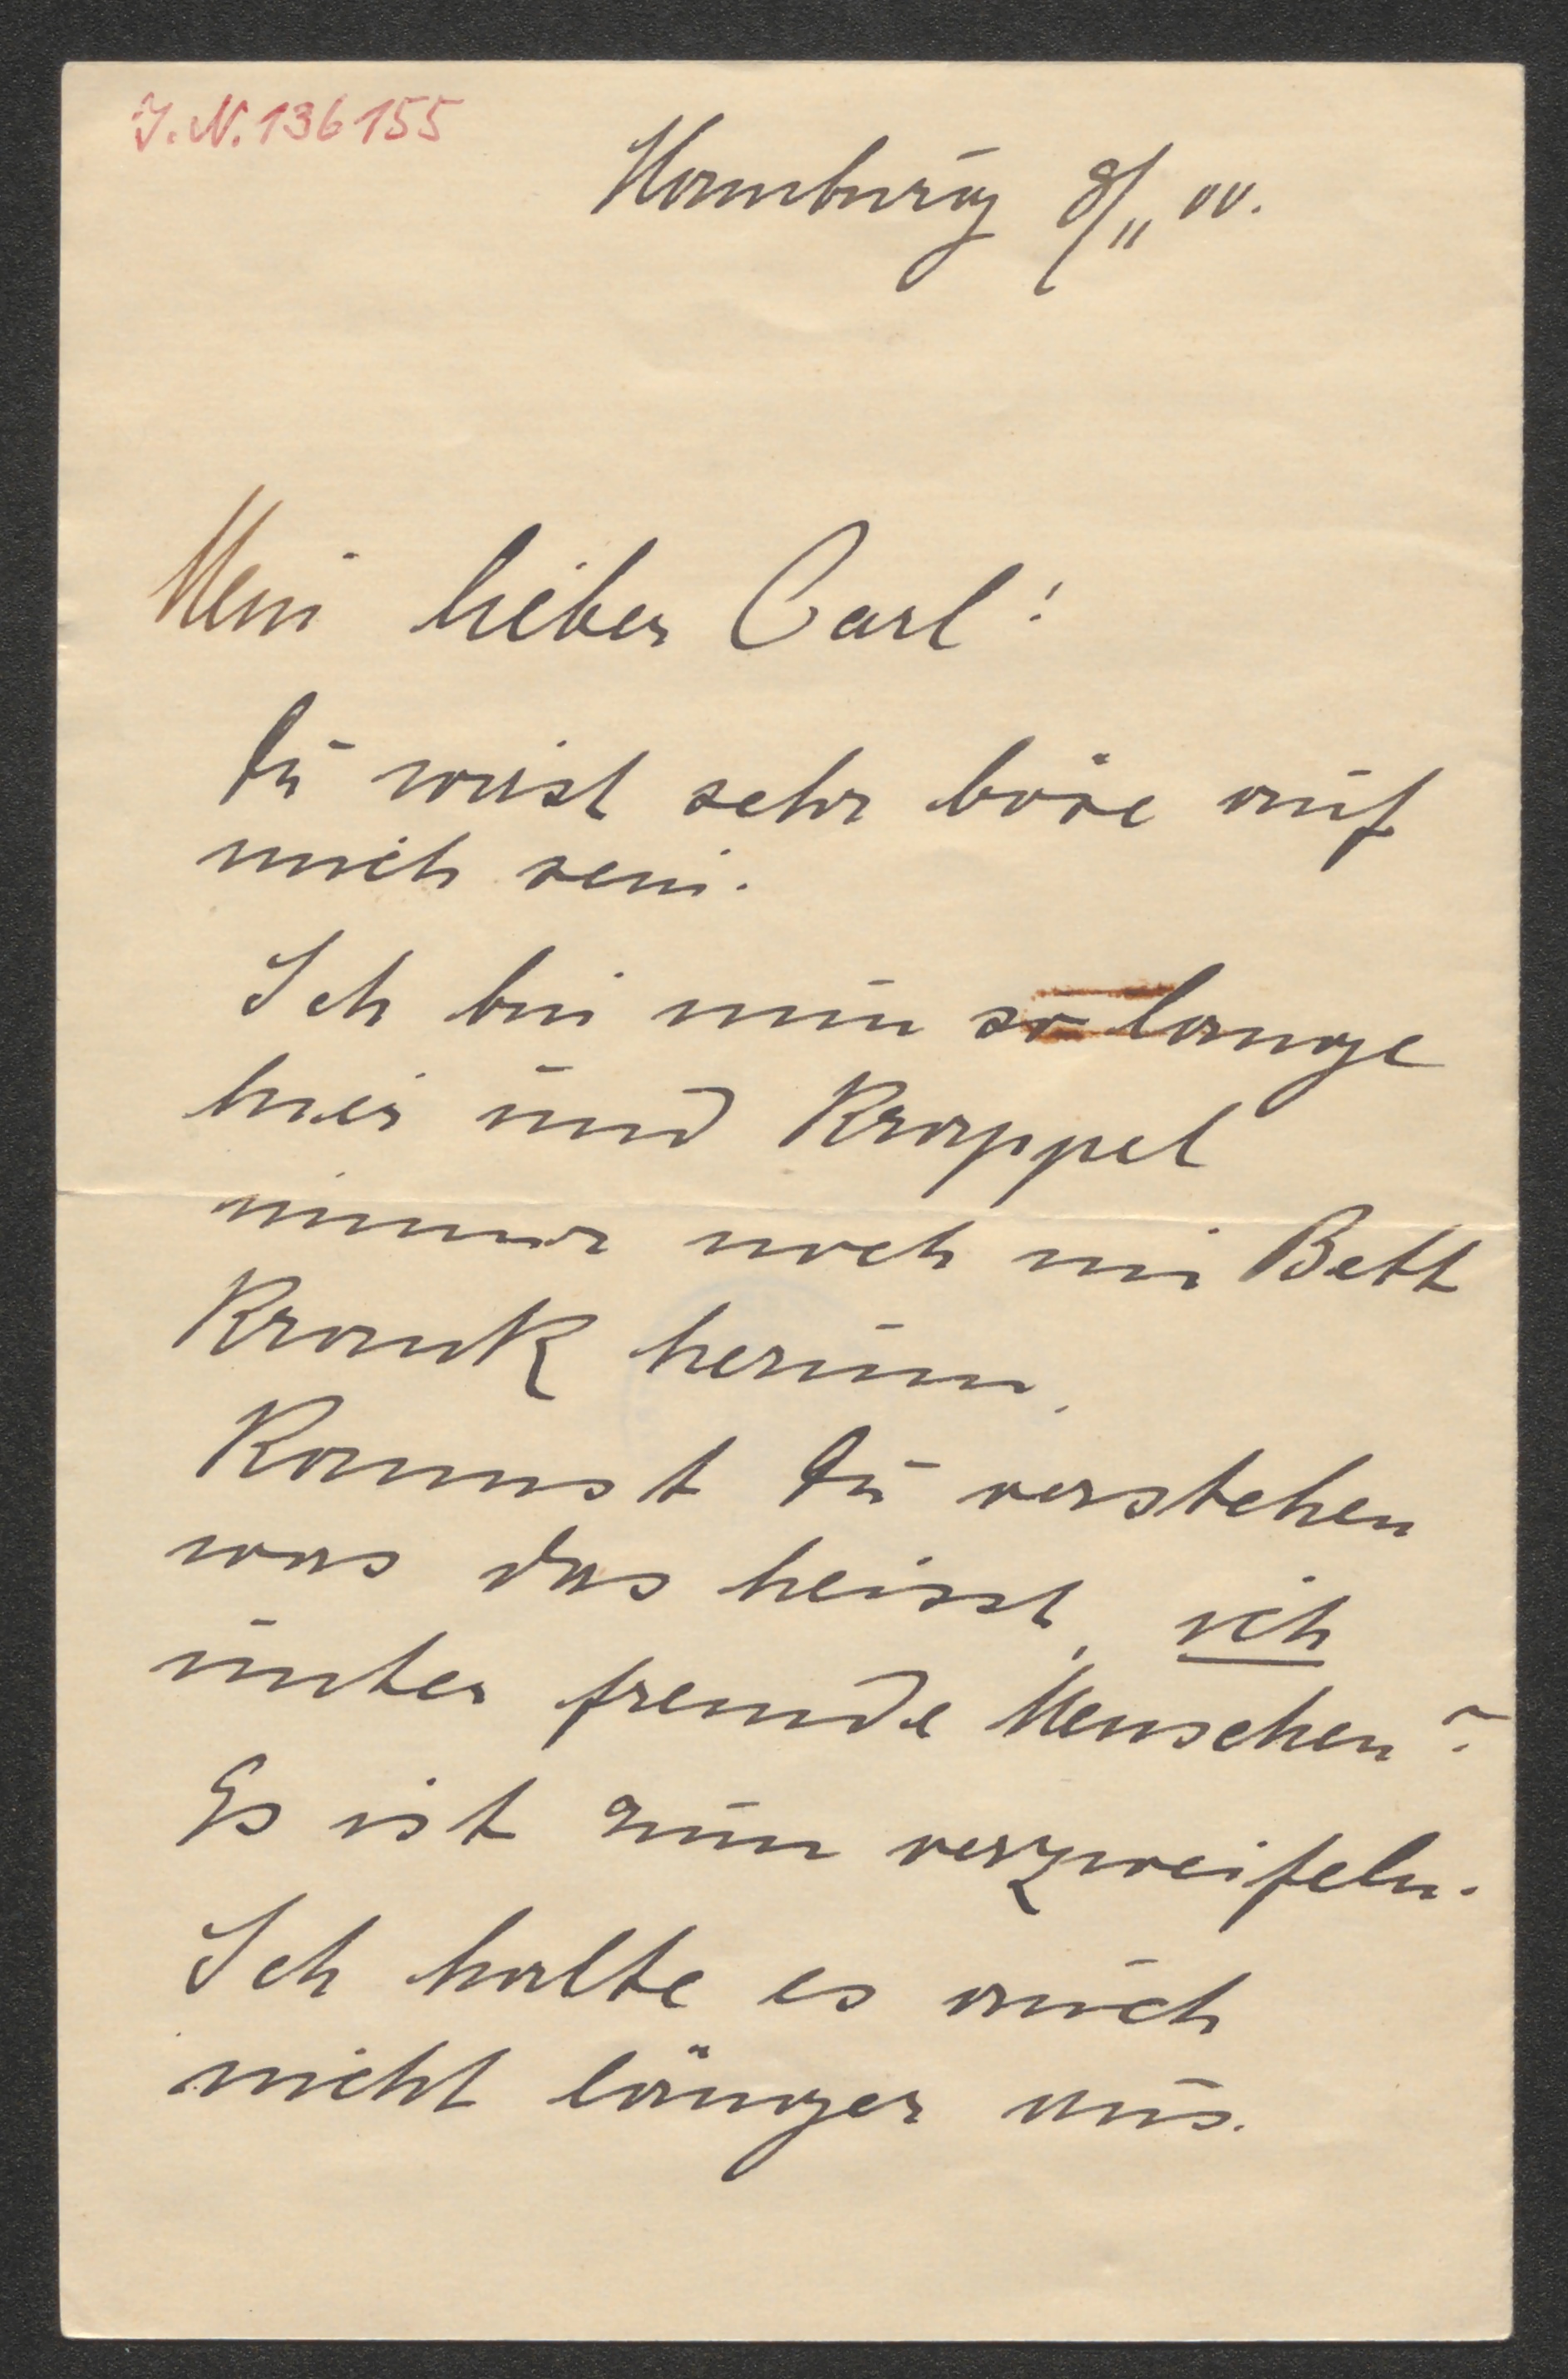 J.N. 136155
Hamburg 8/11 00.
Mein lieber Carl!
Du wirst sehr böse auf
mich sein.
Ich bin nun so lange
hier und Krappel
immer noch im Bett
Krank herum.
Kannst Du verstehen
was das heisst, ich
unter fremde Menschen?
Es ist zum verzweifeln.
Ich halte es auch
nicht länger aus.